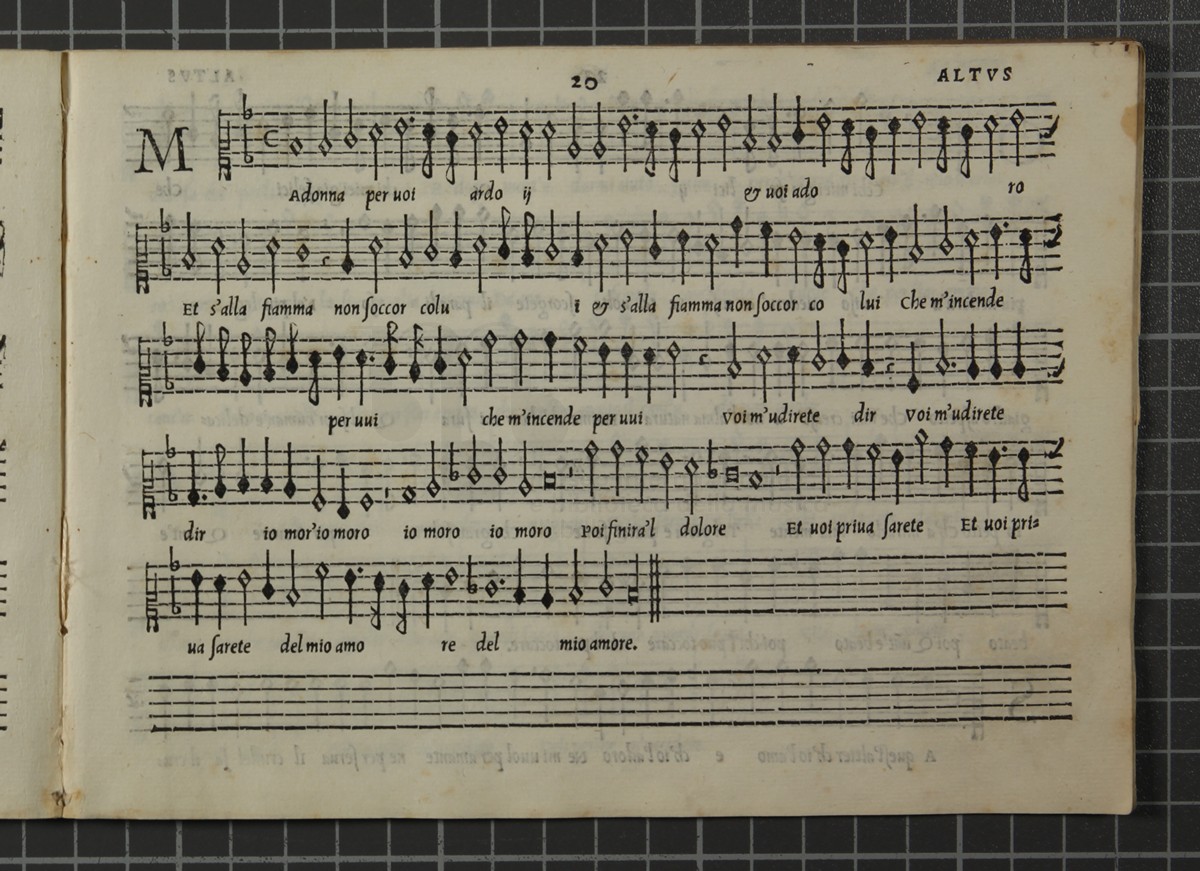 20
ALTVS
MAdonna per uoi ardo ij & uoi ado ro
Et s'alla fiamma non soccor colu i & s'alla fiamma non soccor co lui Che m'incende
per uui che m'incende per uui Voi m'udirete dir Voi m'udirete
dir io mor'io moro io moro io moro Poi finira'l dolore Et uoi priua sarete Et uoi pri=
ua sarete del mio amo re del mio amore.